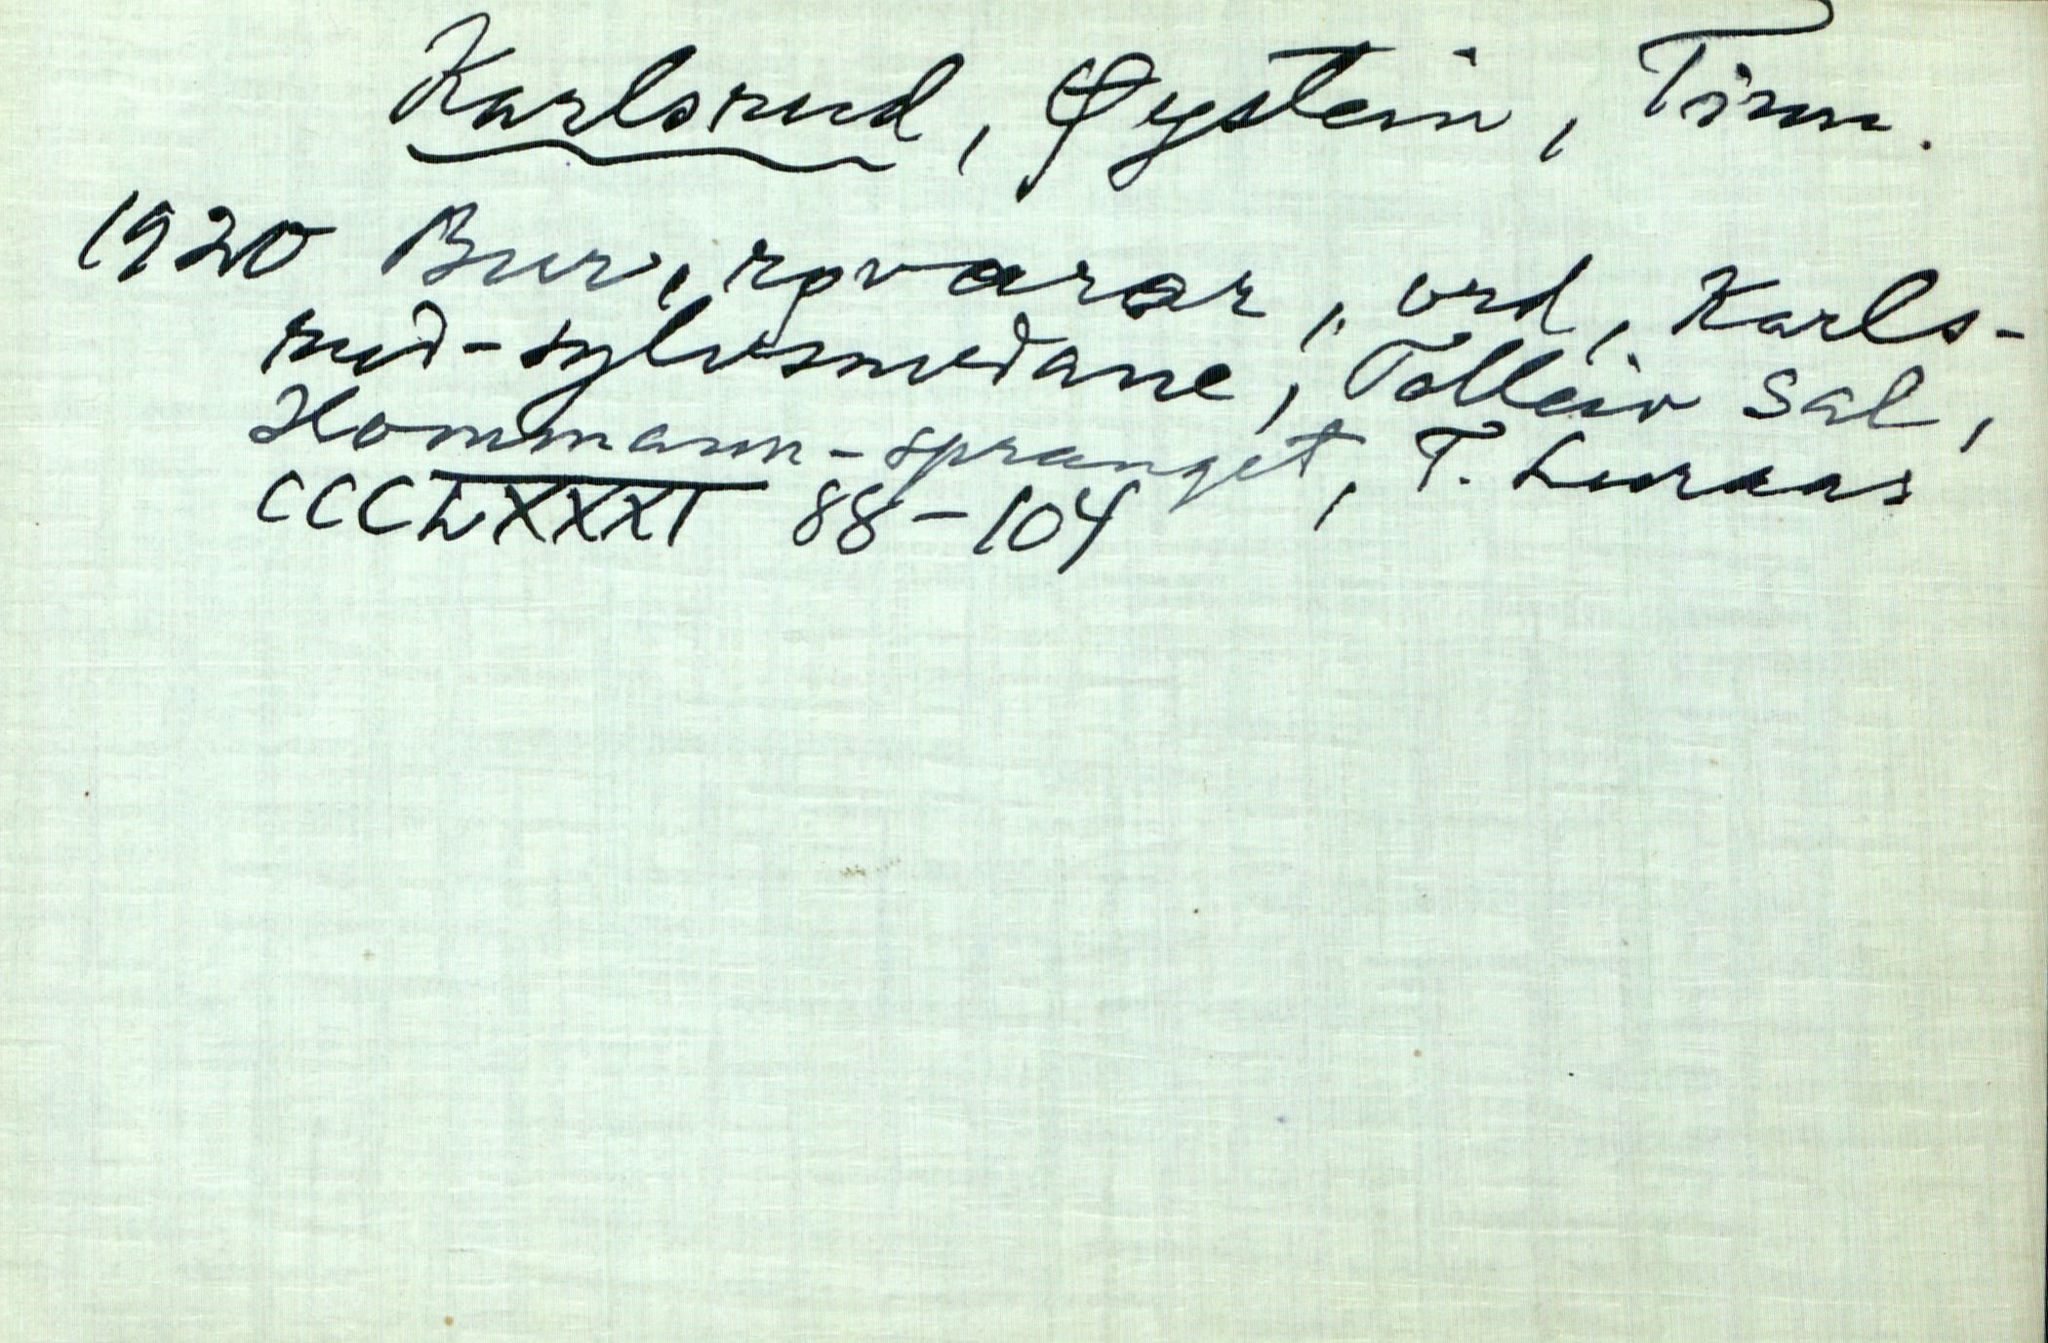 Karlsrud, Øystein, Tinn.
1920 Bur, rövarar, ord, Karls-
rud-sylvsmedane, Tolleiv Sal,
Hommann-spranget, T. Luraas
CCCLXXXI 88-104